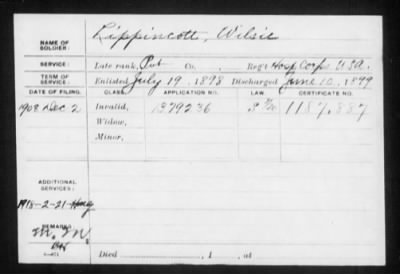 NAME OF SOLDIER: Lippincott, Wilsie
SERVICE: Late rank, Pvt Co. , Reg't Hosp Corps U.S.A.
TERM OF SERVICE: Enlisted July 19, 1898 Discharged June 10, 1899
DATE OF FILING. CLASS. APPLICATION NO. LAW. CERTIFICATE NO.
1908 Dec 2 Invalid, 1379236 1187,887
Widow,
Minor,
ADDITIONAL SERVICES:
1918-2-21
REMARKS:
Died , 1 , at